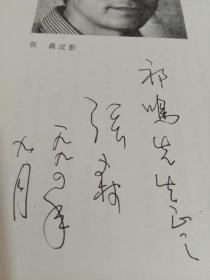 张 森近影
祁鸣先生正之
张森
一九九〇年
九月